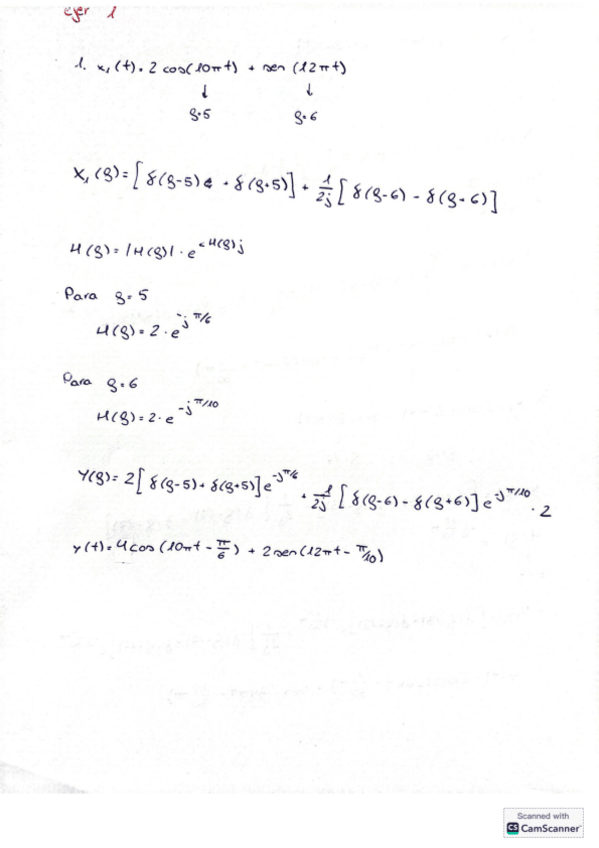 ejer 1
1. x₁(t) = 2 cos(10πt) + sen (12πt)
↓ ↓
f=5 f=6
X₁(f) = [δ(f-5) + δ(f+5)] + 1/2j [δ(f-6) - δ(f+6)]
H(f) = |H(f)| · e^(<H(f)j)
Para f=5
H(f) = 2 · e^(-jπ/6)
Para f=6
H(f) = 2 · e^(-jπ/10)
Y(f) = 2[δ(f-5) + δ(f+5)]e^(-jπ/6) + 1/2j [δ(f-6) - δ(f+6)]e^(-jπ/10) · 2
y(t) = 4cos(10πt - π/6) + 2sen(12πt - π/10)
Scanned with
CS CamScanner